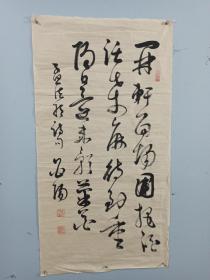 開軒面場圃把酒
話桑麻待到重
陽日還來就菊花
孟浩然詩句